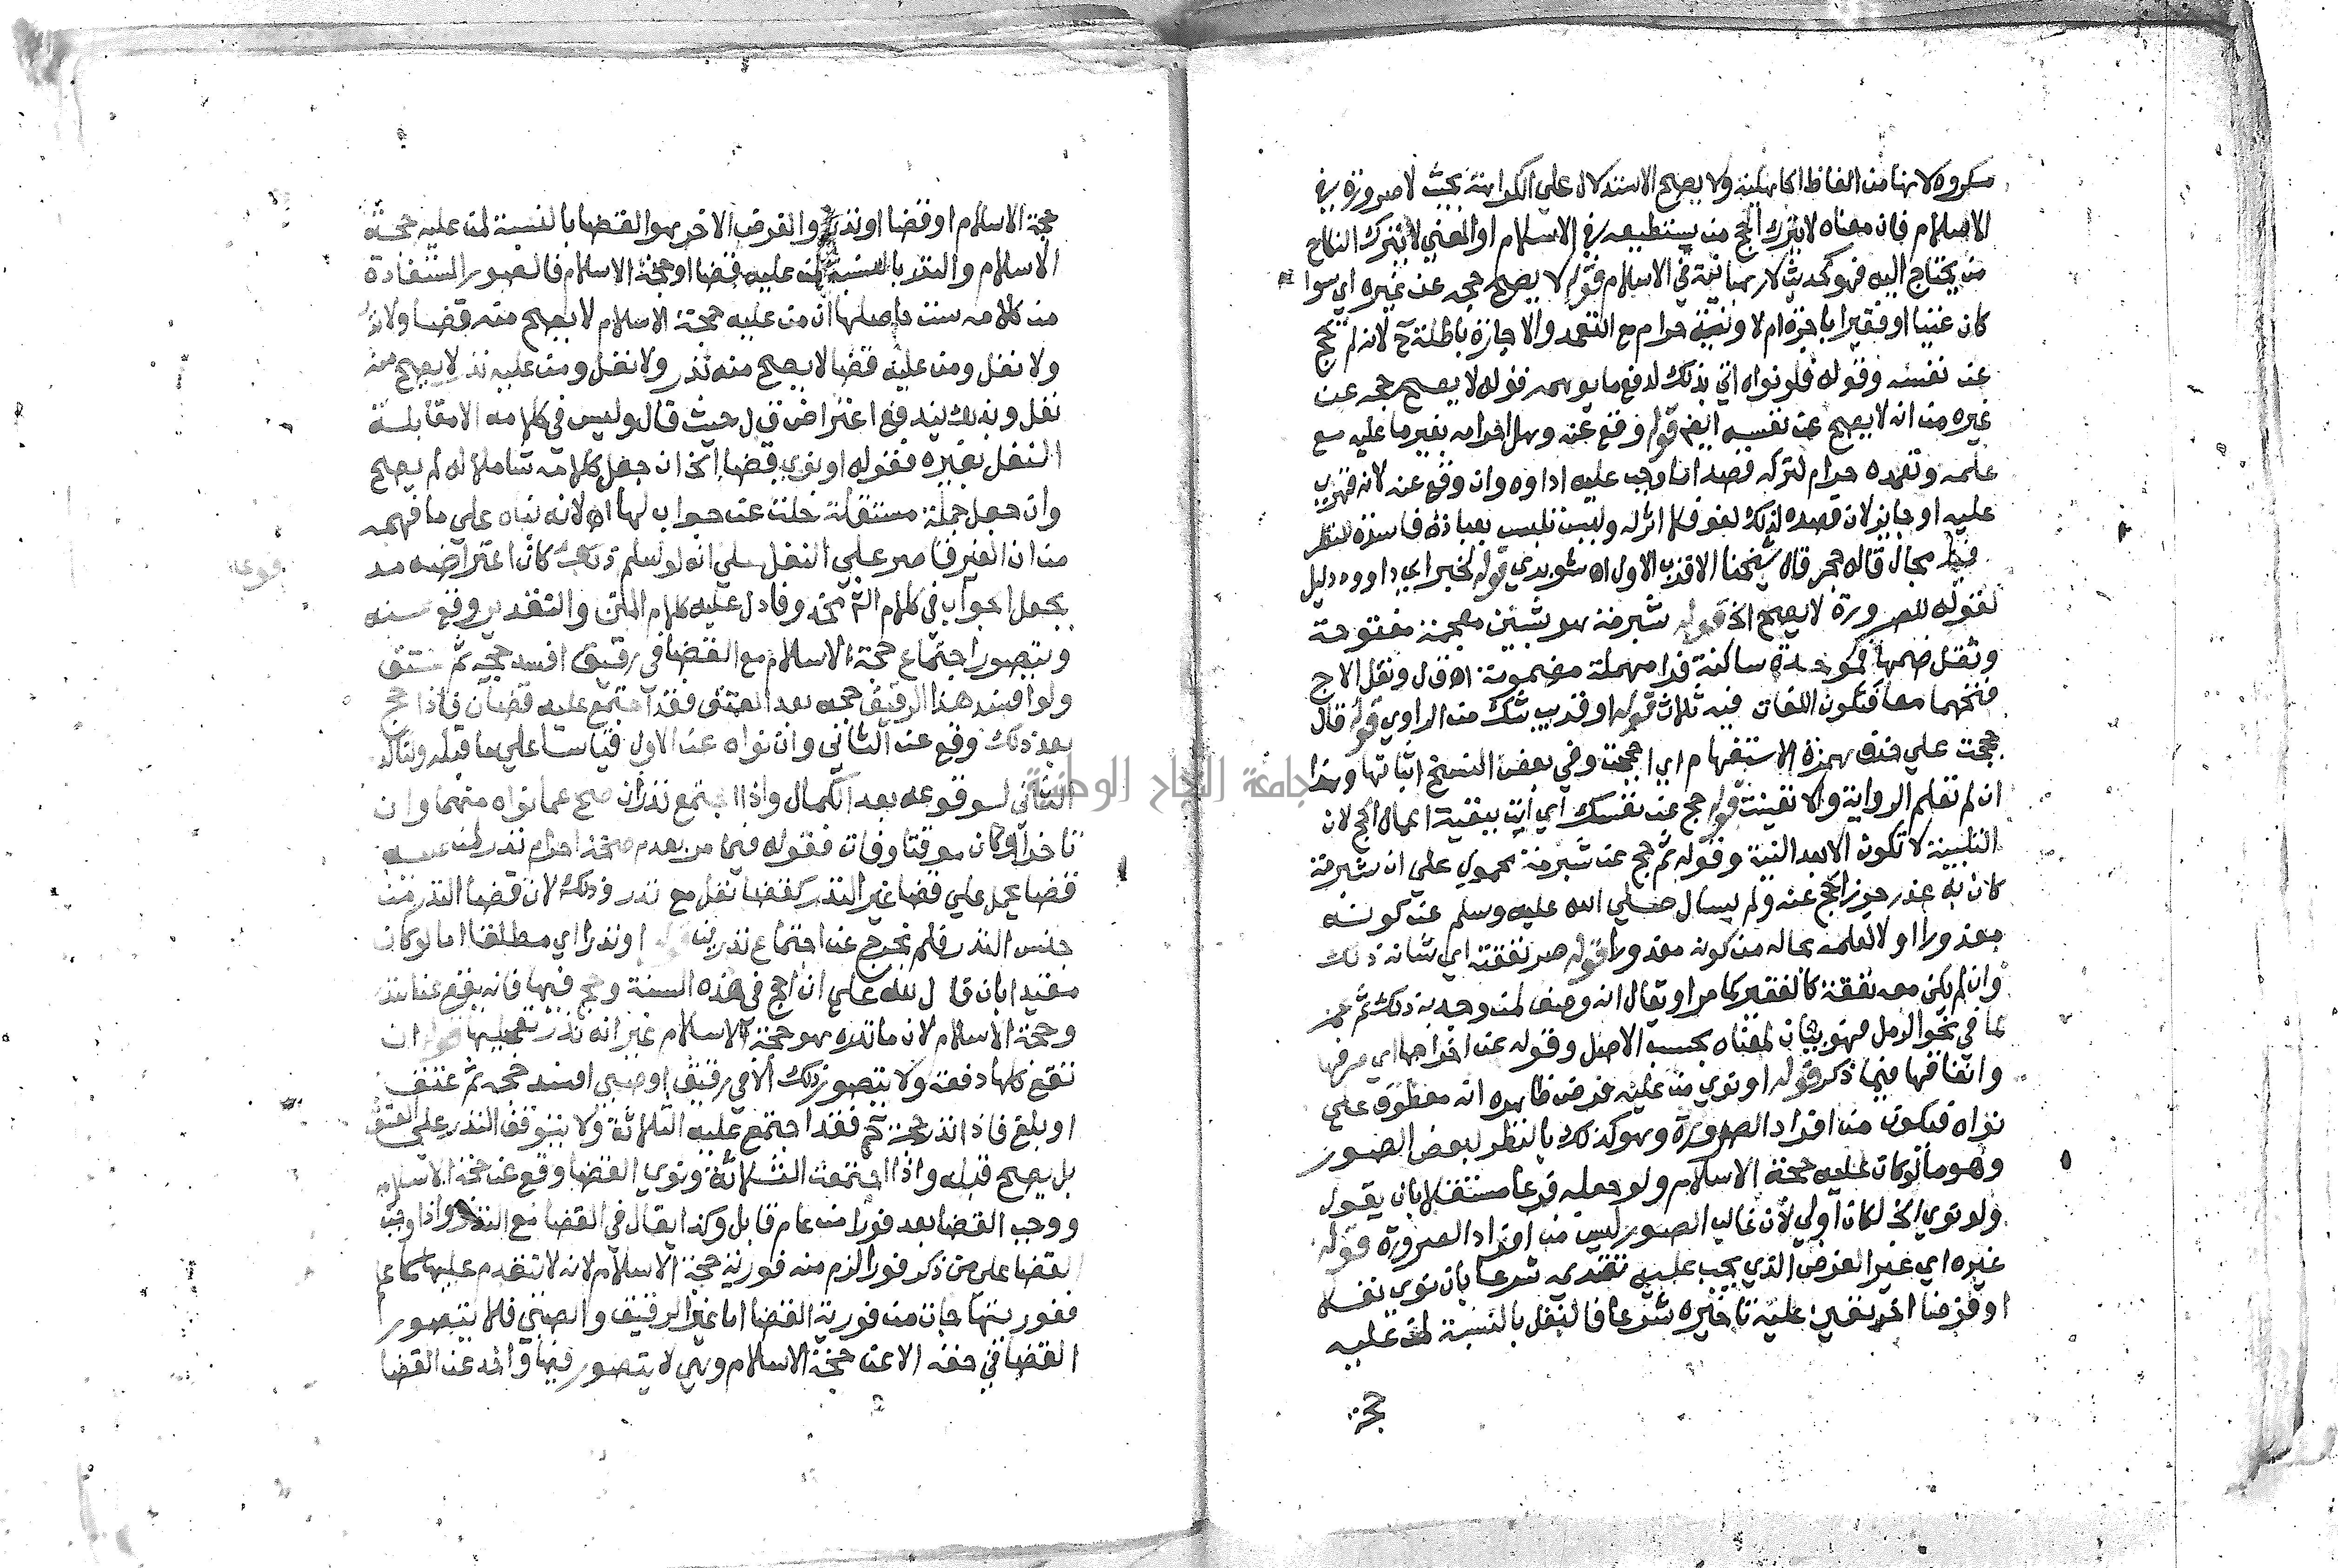 مكروه لانها من الفاظ الجاهلية ولا يصح الاستدلال علي الكراهة بحيث لا صرورة في
الاسلام فان معناه لا يترك الحج من يستطيعه في الاسلام او المعني لا يترك النكاح
من يحتاج اليه فهو كحديث لا رهبانية في الاسلام قوله لا يصح حجه عن غيره اي سوا
كان غنيا او فقيرا باجرة ام لا ونيته حرام مع التعمد والاجارة باطلة ح لانه لم يحج
عن نفسه وقوله فلو نواه اتي بذلك لدفع ما يوهمه قوله لا يصح حجه عن
غيره من انه لا يصح عن نفسه ايضا قوله وقع عنه وهل احرامه بغير ما عليه مع
علمه وتعمده حرام لتركه قصد ما وجب عليه اداوه وان وقع عنه لانه قهري
عليه او جايز لان قصده لذلك لغو فلا اثر له وليس تلبس بعبادة فاسدة للنظر
فيه مجال قاله حجر قال شيخنا الاقرب الاول اه شوبري قوله لخبر ابي داود دليل
لقوله للصرورة لا يصح الخ قوله شبرمة هو بشين معجمة مفتوحة
ونقل ضمها فموحدة ساكنة فرا مهملة مضمومة اه ق ل ونقل الاج
فتحهما معا فتكون اللغات فيه ثلاث قوله او قريب شك من الراوي قوله قال
حججت علي حذف همزة الاستفهام اي احججت وفي بعض النسخ اثباتها وهذا
ان لم تعلم الرواية والا تعينت قوله حج عن نفسك اي ايت ببقية اعمال الحج لان
التلبية لا تكون الا بعد النية وقوله ثم حج عن شبرمة محمول علي ان شبرمة
كان به عذر جوز الحج عنه ولم يسال صلي الله عليه وسلم عن كونه
معذورا اولا لعلمه بحاله من كونه معذورا قوله نفقته اي شانه ذلك
وان لم يكن معه نفقة كالفقير كما مر او يقال انه وصف لمن وجد به ذلك ثم
لما في نحو الرمل فهو بيان لمعناه بحسب الاصل وقوله عن اخراجها اي صرفها
وانفاقها فيما ذكر قوله او نوي من عليه فرض ظاهره انه معطوف علي
نواه فيكون من افراد الصرورة وهو كذلك بالنظر لبعض الصور
وهو ما لو كان عليه حجة الاسلام ولو جعله فرعا مستقلا بان يقول
ولو نوي الخ لكان اولي لان غالب الصور ليس من افراد الصرورة قوله
غيره اي غير الفرض الذي يجب عليه تقديمه شرعا بان نوي نفلا
او فرضا اخر تعين عليه تاخيره شرعا فالنفل بالنسبة لمن عليه
حجة
حجة الاسلام او قضا او نذر والفرض الاخر هو القضا بالنسبة لمن عليه حجة
الاسلام والنذر بالنسبة لمن عليه قضا او حجة الاسلام فالصور المستفادة
من كلامه ست حاصلها ان من عليه حجة الاسلام لا يصح منه قضا ولا نذر
ولا نفل ومن عليه قضا لا يصح منه نذر ولا نفل ومن عليه نذر لا يصح منه
نفل وبذلك يندفع اعتراض ق ل حيث قال وليس في كلامه الا مقابلة
النفل بغيره فقوله او نوي قضا الخ ان جعل كلامه شاملا له لم يصح
وان جعل جملة مستقلة خلت عن جواب لها اه لانه بناه علي ما فهمه
من ان الغير قاصر علي النفل علي انه لو سلم ذلك كان اعتراضه
بجعل الجواب في كلام الش محذوفا دل عليه كلام المتن والتقدير وقع
ويتصور اجتماع حجة الاسلام مع القضا في رقيق افسد حجه ثم عتق
ولو افسد هذا الرقيق حجه بعد العتق فقد اجتمع عليه قضان فاذا حج
بعد ذلك وقع عن الثاني وان نواه عن الاول قياسا علي ما قبله
الثاني لوقوعه بعد الكمال واذا اجتمع نذران صح عما نواه منهما وان
تاخر او كان موقتا وفات فقوله فيما من عدم صحة احرام نذر لمن عليه
قضا يحمل علي قضا غير النذر كقضا نفل مع نذر وذلك لان قضا النذر من
جنس النذر فلم يخرج عن اجتماع نذرين قوله او نذرا اي مطلقا اما لو كان
مقيدا بان قال لله علي ان احج في هذه السنة وحج فيها فانه يقع عنها
وحجة الاسلام لان ما نذره هو حجة الاسلام غير انه نذر تعجيلها قوله ان
تقع كلها دفعة ولا يتصور ذلك الا في رقيق او صبي افسد حجه ثم عتق
او بلغ فاذا نذر حجة ح فقد اجتمع عليه الثلاثة ولا يتوقف النذر علي العتق
بل يصح قبله واذا اجتمعت الثلاثة ونوي القضا وقع عن حجة الاسلام
ووجب القضا بعد فورا من عام قابل وكذا يقال في القضا مع النذر واذا وجب
القضا علي من ذكر فورا لزم منه فورية حجة الاسلام لانه لا تتقدم عليها
ففوريتها جات من فورية القضا اما غير الرقيق والصبي فلا يتصور
القضا في حقه الا عن حجة الاسلام وهي لا يتصور فيها عن القضا
جامعة النجاح الوطنية